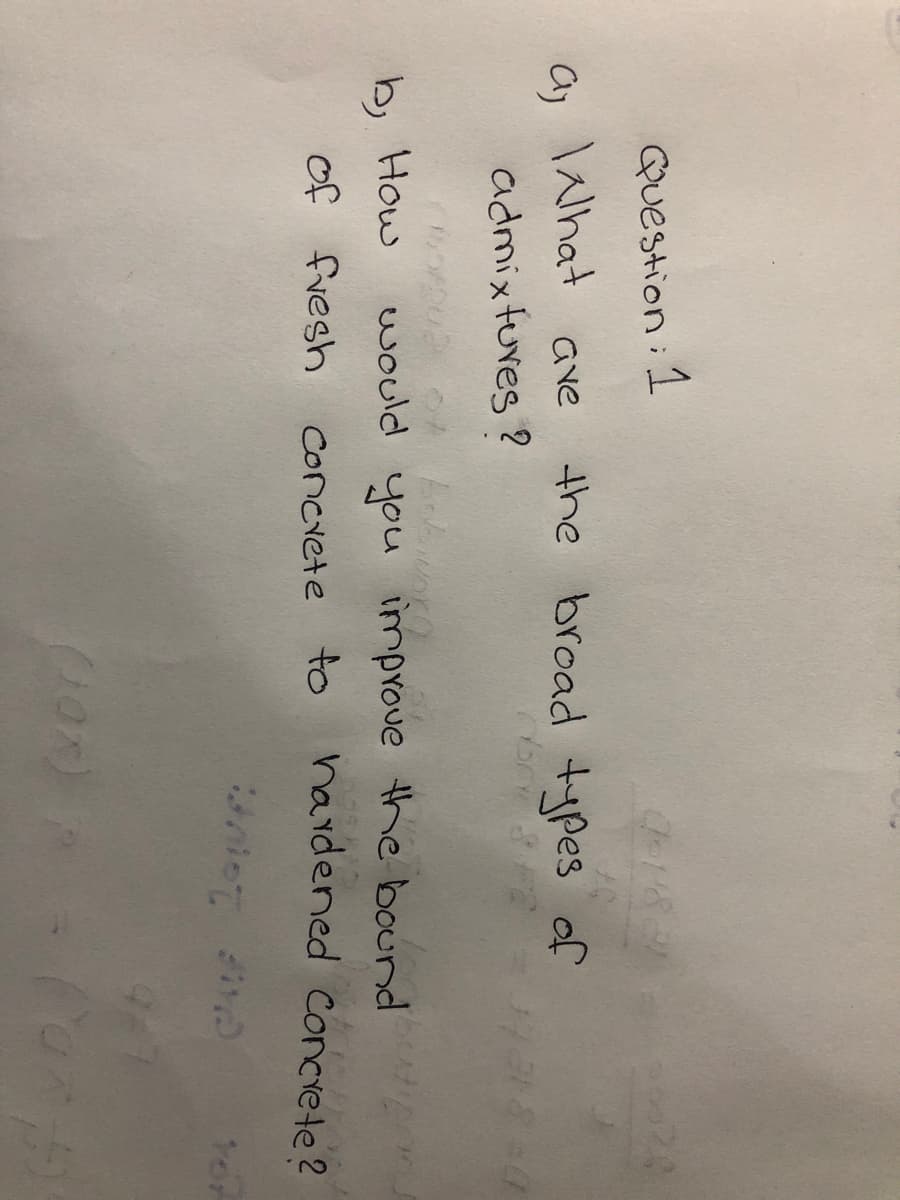 Question : 1
a, What are the broad types of
admixtures ?
b, How would you improve the bound
of fresh concrete to hardened concrete?